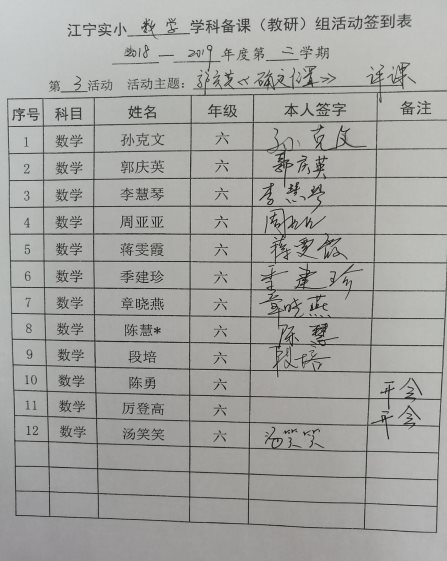 江宁实小 数学 学科备课（教研）组活动签到表
2018 — 2019 年度第 二 学期
第 3 活动 活动主题: 郭庆英《确定位置》 评课
序号 科目 姓名 年级 本人签字 备注
1 数学 孙克文 六 孙克文
2 数学 郭庆英 六 郭庆英
3 数学 李慧琴 六 李慧琴
4 数学 周亚亚 六 周亚亚
5 数学 蒋雯霞 六 蒋雯霞
6 数学 季建珍 六 季建珍
7 数学 章晓燕 六 章晓燕
8 数学 陈慧* 六 陈慧
9 数学 段培 六 段培
10 数学 陈勇 六 开会
11 数学 厉登高 六 开会
12 数学 汤笑笑 六 汤笑笑